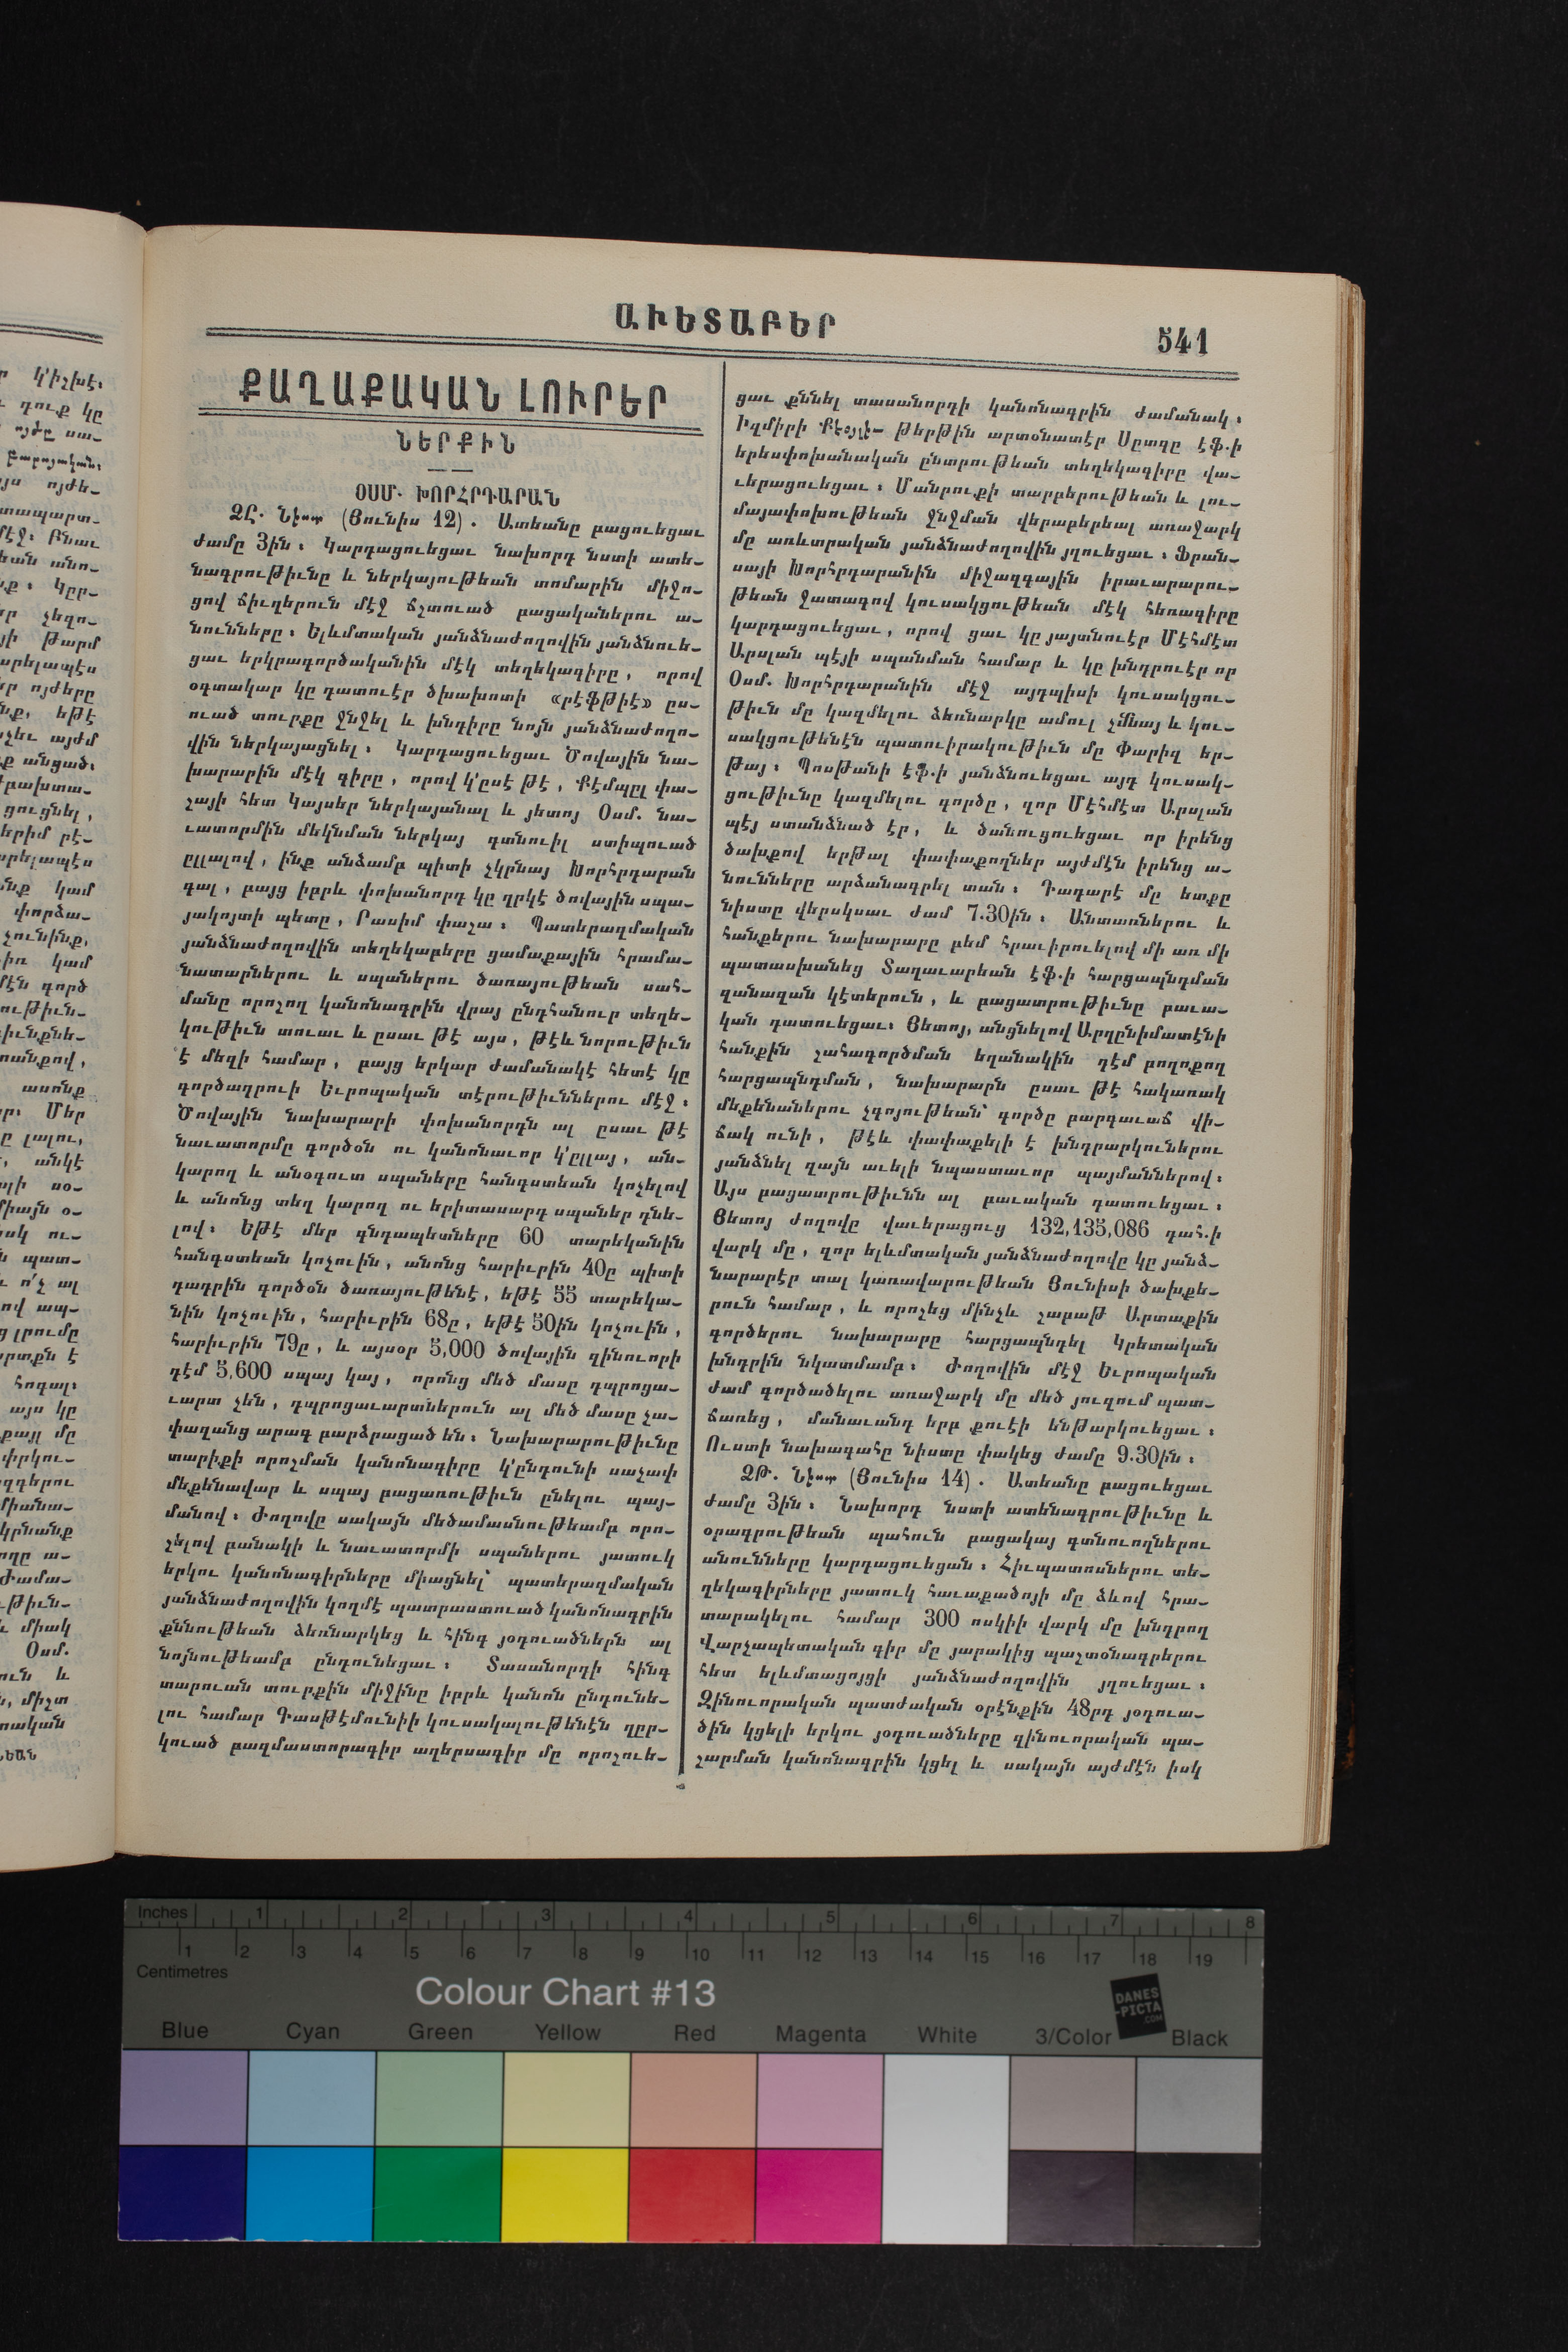 ԱՒԵՏԱԲԵՐ
541
ՔԱՂԱՔԱԿԱՆ ԼՈՒՐԵՐ
ՆԵՐՔԻՆ
ՕՍՄ. ԽՈՐՀՐԴԱՐԱՆ
ՁԸ. Նիստ (Յունիս 12). Ատեանը բացուեցաւ
ժամը 3ին: Կարդացուեցաւ նախորդ նստի ատե-
նագրութիւնը և ներկայութեան տոմարին միջո-
ցով ճիւղերուն մէջ ճշտուած բացականերու ա-
նունները: Ելևմտական յանձնաժողովին յանձնուե-
ցաւ երկրագործականին մէկ տեղեկագիրը, որով
օգտակար կը դատուէր ծխախոտի «րէֆթիէ» ըս-
ուած տուրքը ջնջել և խնդիրը նոյն յանձնաժողո-
վին ներկայացնել: Կարդացուեցաւ Ծովային նա-
խարարին մէկ գիրը, որով կ'ըսէ թէ, Քէմպըլ փա-
շայի հետ Կայսեր ներկայանալ և յետոյ Օսմ. նա-
ւատորմին մեկնման ներկայ գտնուիլ ստիպուած
ըլլալով, ինք անձամբ պիտի չկրնայ Խորհրդարան
գալ, բայց իբրև փոխանորդ կը ղրկէ ծովային սպա-
յակոյտի պետը, Րասիմ փաշա: Պատերազմական
յանձնաժողովին տեղեկաբերը ցամաքային հրամա-
նատարներու և սպաներու ծառայութեան սահ-
մանը որոշող կանոնագրին վրայ ընդհանուր տեղե-
կութիւն տուաւ և ըսաւ թէ այս, թէև նորութիւն
է մեզի համար, բայց երկար ժամանակէ հետէ կը
գործադրուի Եւրոպական տէրութիւններու մէջ:
Ծովային նախարարի փոխանորդն ալ ըսաւ թէ
նաւատորմը գործօն ու կանոնաւոր կ'ըլլայ, ան-
կարող և անօգուտ սպաները հանգստեան կոչելով
և անոնց տեղ կարող ու երիտասարդ սպաներ դնե-
լով: Եթէ մեր գնդապետները 60 տարեկանին
հանգստեան կոչուին, անոնց հարիւրին 40ը պիտի
դադրին գործօն ծառայութենէ, եթէ 55 տարեկա-
նին կոչուին, հարիւրին 68ը, եթէ 50ին կոչուին,
հարիւրին 79ը, և այսօր 5,000 ծովային զինուորի
դէմ 5,600 սպայ կայ, որոնց մեծ մասը դպրոցա-
ւարտ չեն, դպրոցաւարտներուն ալ մեծ մասը չա-
փազանց արագ բարձրացած են: Նախարարութիւնը
տարիքի որոշման կանոնագիրը կ'ընդունի սաչափ
մեքենավար և սպայ բացառութիւն ընելու պայ-
մանով: Ժողովը սակայն մեծամասնութեամբ որո-
շելով բանակի և նաւատորմի սպաներու յատուկ
երկու կանոնագիրները միացնել՝ պատերազմական
յանձնաժողովին կողմէ պատրաստուած կանոնագրին
քննութեան ձեռնարկեց և հինգ յօդուածներն ալ
նոյնութեամբ ընդունեցաւ: Տասանորդի հինգ
տարուան տուրքին միջինը իբրև կանոն ընդունե-
լու համար Գասթէմունիի կուսակալութենէն ղըր-
կուած բազմաստորագիր աղերսագիր մը որոշուե-
ցաւ քննել տասանորդի կանոնագրին ժամանակ:
Իզմիրի Քէօյլի- թերթին արտօնատէր Սըտգը էֆ.ի
երեսփոխանական ընտրութեան տեղեկագիրը վա-
ւերացուեցաւ: Մանրուքի տարբերութեան և լու-
մայափոխութեան ջնջման վերաբերեալ առաջարկ
մը առևտրական յանձնաժողովին յղուեցաւ: Ֆրան-
սայի Խորհրդարանին միջազգային իրաւարարու-
թեան ջատագով կուսակցութեան մէկ հեռագիրը
կարդացուեցաւ, որով ցաւ կը յայտնուէր Մէհմէտ
Արսլան պէյի սպանման համար և կը խնդրուէր որ
Օսմ. Խորհրդարանին մէջ այդպիսի կուսակցու-
թիւն մը կազմելու ձեռնարկը ամուլ չմնայ և կու-
սակցութենէն պատուիրակութիւն մը Փարիզ եր-
թայ: Պոսթանի էֆ.ի յանձնուեցաւ այդ կուսակ-
ցութիւնը կազմելու գործը, զոր Մէհմէտ Արսլան
պէյ ստանձնած էր, և ծանուցուեցաւ որ իրենց
ծախքով երթալ փափաքողներ այժմէն իրենց ա-
նունները արձանագրել տան: Դադարէ մը ետքը
նիստը վերսկսաւ ժամ 7.30ին: Անտառներու և
հանքերու նախարարը բեմ հրաւիրուելով մի առ մի
պատասխանեց Տաղաւարեան էֆ.ի հարցապնդման
զանազան կէտերուն, և բացատրութիւնը բաւա-
կան դատուեցաւ: Յետոյ, անցնելով Արղընիմատէնի
հանքին շահագործման եղանակին դէմ բողոքող
հարցապնդման, նախարարն ըսաւ թէ հակառակ
մեքենաներու չգոյութեան՝ գործը բարգաւաճ վի-
ճակ ունի, թէև փափաքելի է խնդրարկուներու
յանձնել զայն աւելի նպաստաւոր պայմաններով:
Այս բացատրութիւնն ալ բաւական դատուեցաւ:
Յետոյ ժողովը վաւերացուց 132,135,086 դահ.ի
վարկ մը, զոր ելևմտական յանձնաժողովը կը յանձ-
նարարէր տալ կառավարութեան Յունիսի ծախքե-
րուն համար, և որոշեց մինչև շաբաթ Արտաքին
գործերու նախարարը հարցապնդել Կրետական
խնդրին նկատմամբ: Ժողովին մէջ Եւրոպական
ժամ գործածելու առաջարկ մը մեծ յուզում պատ-
ճառեց, մանաւանդ երբ քուէի ենթարկուեցաւ:
Ուստի նախագահը նիստը փակեց ժամը 9.30ին:
ՁԹ. Նիստ (Յունիս 14). Ատեանը բացուեցաւ
ժամը 3ին: Նախորդ նստի ատենագրութիւնը և
օրագրութեան պահուն բացակայ գտնուողներու
անունները կարդացուեցան: Հիւպատոսներու տե-
ղեկագիրները յատուկ հաւաքածոյի մը ձևով հրա-
տարակելու համար 300 ոսկիի վարկ մը խնդրող
Վարչապետական գիր մը յարակից պաշտօնագրերու
հետ ելևմտացոյցի յանձնաժողովին յղուեցաւ:
Զինուորական պատժական օրէնքին 48րդ յօդուա-
ծին կցելի երկու յօդուածները զինուորական պա-
շարման կանոնագրին կցել և սակայն այժմէն իսկ
Inches 1 2 3 4 5 6 7 8
1 2 3 4 5 6 7 8 9 10 11 12 13 14 15 16 17 18 19
Centimetres
Colour Chart #13
DANES
-PICTA
.COM
Blue Cyan Green Yellow Red Magenta White 3/Color Black